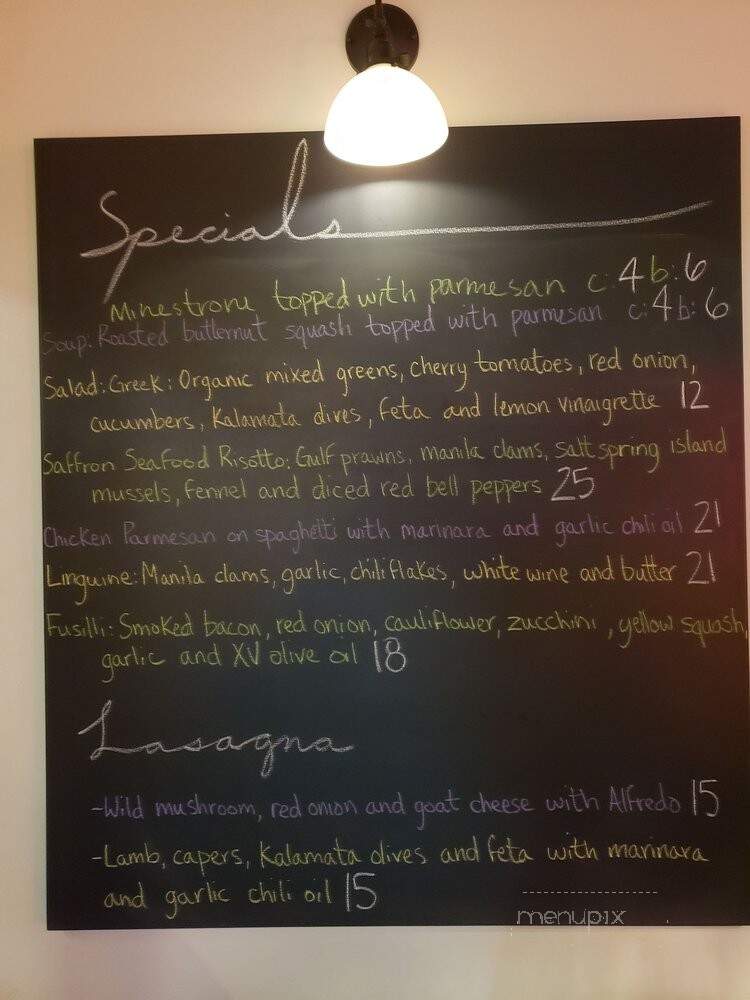 Specials
Minestrone topped with parmesan c:4 b:6
Soup: Roasted butternut squash topped with parmesan c:4 b:6
Salad: Greek: Organic mixed greens, cherry tomatoes, red onion,
cucumbers, Kalamata olives, feta and lemon vinaigrette 12
Saffron Seafood Risotto: Gulf prawns, manila clams, salt spring island
mussels, fennel and diced red bell peppers 25
Chicken Parmesan on spaghetti with marinara and garlic chili oil 21
Linguine: Manila clams, garlic, chili flakes, white wine and butter 21
Fusilli: Smoked bacon, red onion, cauliflower, zucchini, yellow squash,
garlic and XV olive oil 18
Lasagna
-Wild mushroom, red onion and goat cheese with Alfredo 15
-Lamb, capers, Kalamata olives and feta with marinara
and garlic chili oil 15
menupix